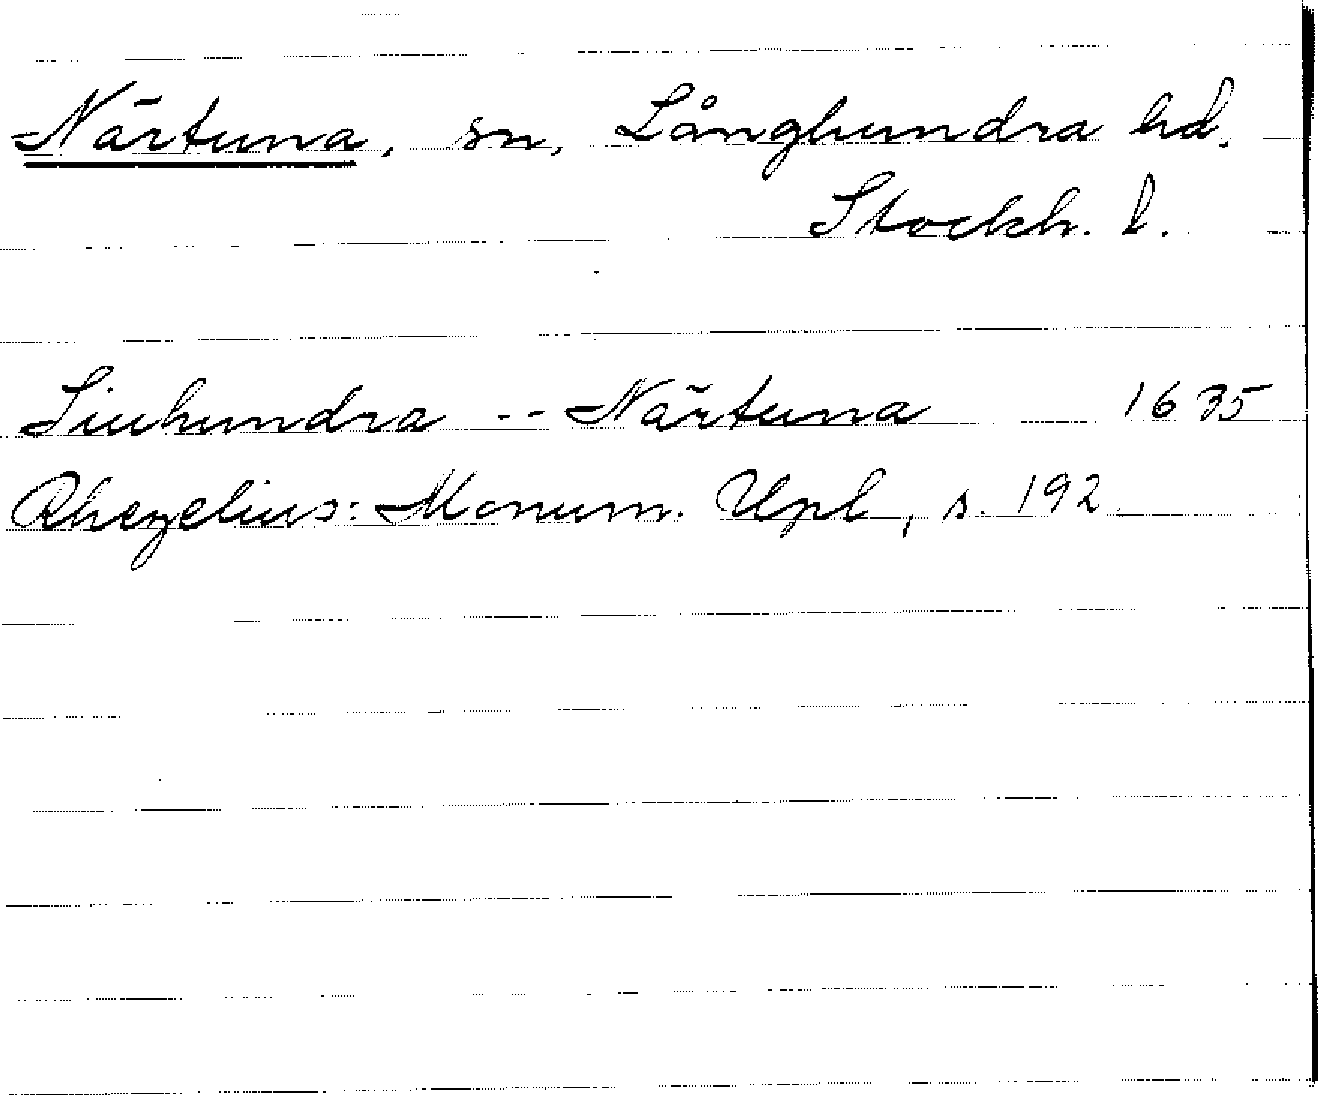 Närtuna, sn, Långhundra hd.
Stockh. l.
Siuhundra -- Närtuna 1635
Rhezelius: Monum. Upl, s. 192